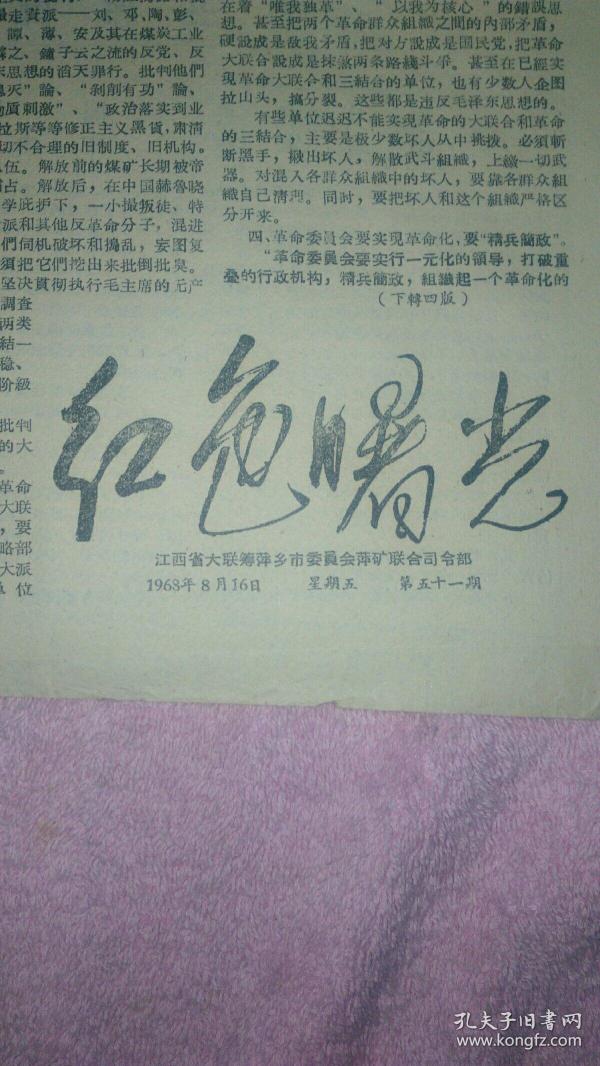 走資派——刘、邓、陶、彭、
譚、薄、安及其在煤炭工业
之、鐘子云之流的反党、反
思想的滔天罪行。批判他們
灭”論、“剝削有功”論、
质刺激”、“政治落实到业
拉斯等等修正主义黑貨，肃清
切不合理的旧制度、旧机构。
伍。解放前的煤矿长期被帝
占。解放后，在中国赫魯曉
学庇护下，一小撮叛徒、特
派和其他反革命分子，混进
們伺机破坏和搗乱，妄图复
須把它們挖出来批倒批臭。
坚决貫彻执行毛主席的无产
調查
两类
結一
稳、
阶級
批判
的大
革命
大联
，要
略部
大派
单位
在着“唯我独革”、“以我为核心”的錯誤思
想。甚至把两个革命群众組織之間的内部矛盾，
硬說成是敌我矛盾，把对方說成是国民党，把革命
大联合說成是抹煞两条路綫斗爭。甚至在已經实
現革命大联合和三結合的单位，也有少数人企图
拉山头，搞分裂。这些都是违反毛泽东思想的。
有些单位迟迟不能实現革命的大联合和革命
的三結合，主要是极少数坏人从中挑拨。必須斬
断黑手，揪出坏人，解散武斗組織，上繳一切武
器。对混入各群众組織中的坏人，要靠各群众組
織自己清理。同时，要把坏人和这个組織严格区
分开来。
四、革命委員会要实現革命化，要“精兵簡政”。
“革命委員会要实行一元化的領导，打破重
叠的行政机构，精兵簡政，組織起一个革命化的
（下轉四版）
红色曙光
江西省大联筹萍乡市委員会萍矿联合司令部
1968年8月16日 星期五 第五十一期
孔夫子旧书网
www.kongfz.com